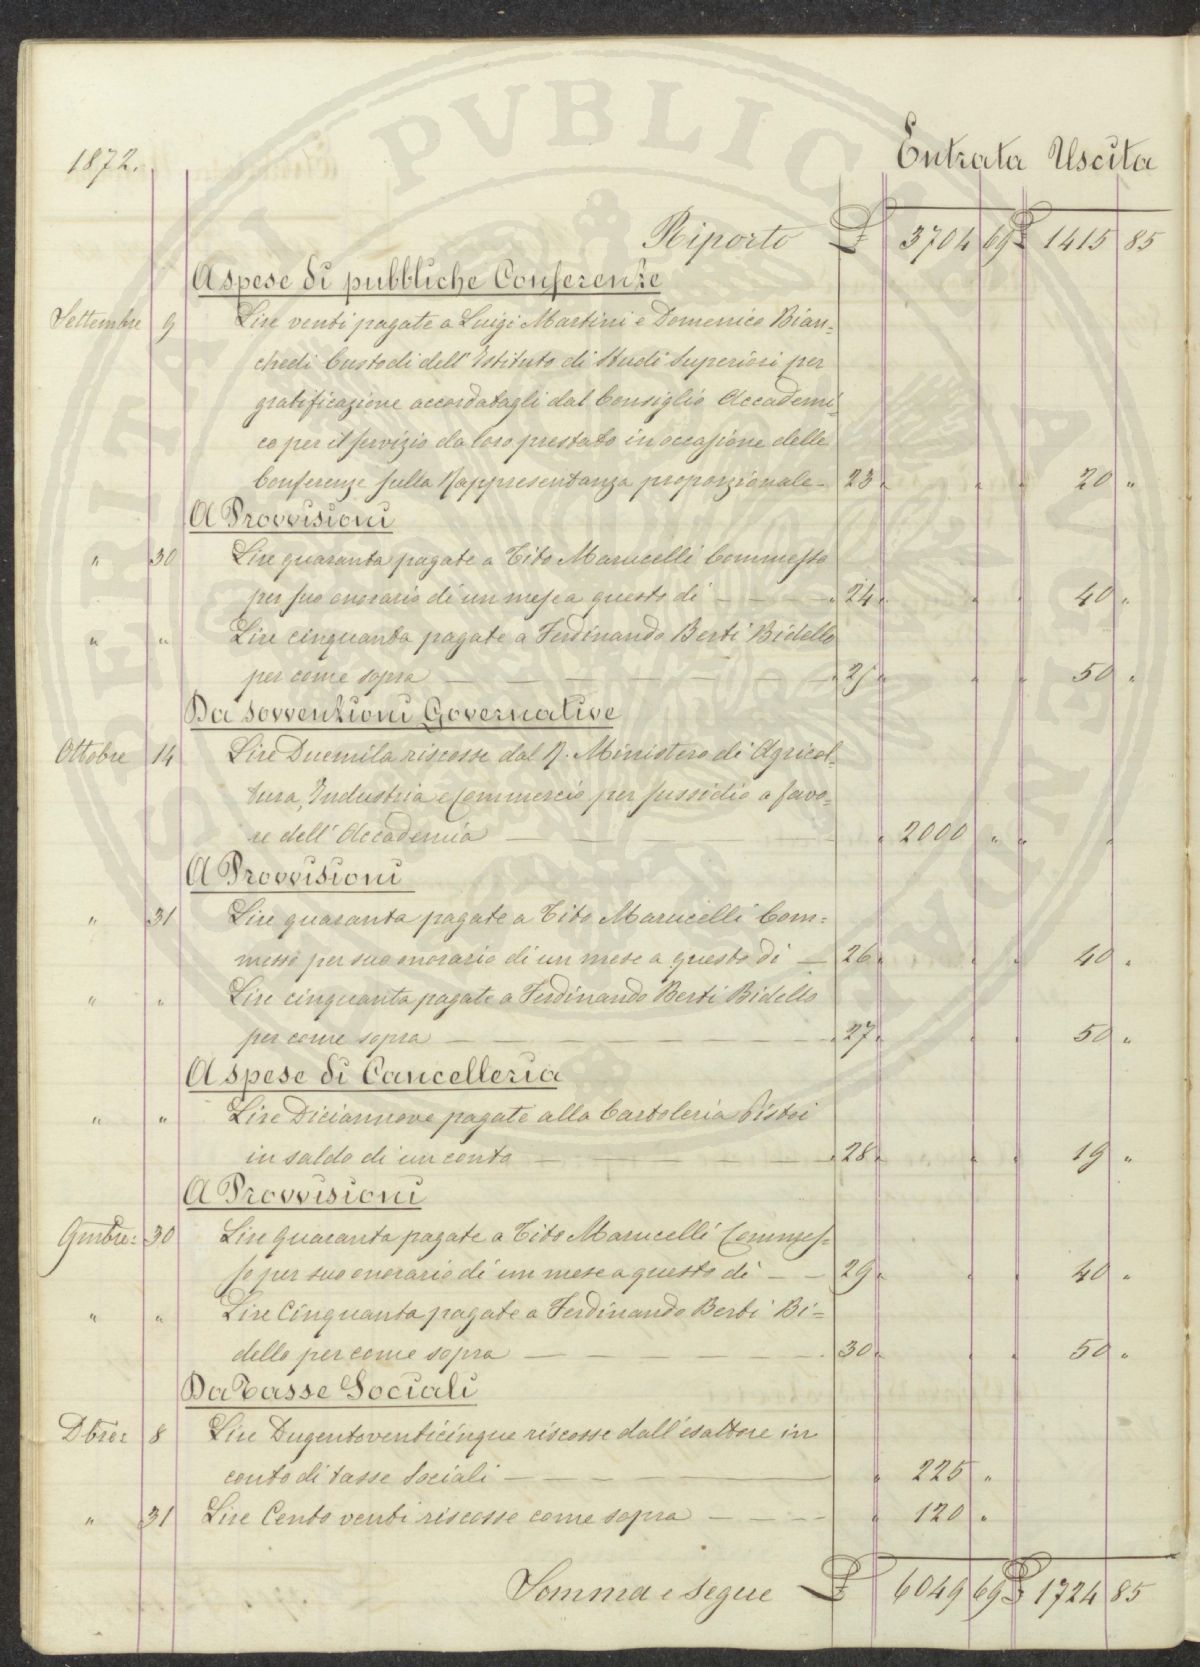 1872.
Entrata Uscita
Riporto £ 3704 69 £ 1415 85
A spese di pubbliche Conferenze
Settembre 9 Lire venti pagate a Luigi Martini e Domenico Bian=
chedi Custodi dell'Istituto di Studi Superiori per
gratificazione accordatagli dal Consiglio Accademi=
co per il servizio da loro prestato in occasione delle
Conferenze sulla Rappresentanza proporzionale - 23 " " " 20 "
A Provvisioni
" 30 Lire quaranta pagate a Tito Marucelli Commesso
per suo onorario di un mese a questo dì — — — 24 " " " 40 "
" " Lire cinquanta pagate a Ferdinando Berti Bidello
per come sopra — — — — — — 25 " " " 50 "
Da Sovvenzioni Governative
Ottobre 14 Lire Duemila riscosse dal R. Ministero di Agricol=
tura, Industria e Commercio per sussidio a favo=
re dell'Accademia — — — — " 2000 " " "
A Provvisioni
" 31 Lire quaranta pagate a Tito Marucelli Com=
messo per suo onorario di un mese a questo dì — 26 " " " 40 "
" " Lire cinquanta pagate a Ferdinando Berti Bidello
per come sopra — — — — — — 27 " " " 50 "
A spese di Cancelleria
" " Lire Diciannove pagate alla Cartoleria Pistoi
in saldo di un conto — — — — 28 " " " 19 "
A Provvisioni
9mbre: 30 Lire Quaranta pagate a Tito Marucelli Commes=
so per suo onorario di un mese a questo dì — — 29 " " " 40 "
" " Lire Cinquanta pagate a Ferdinando Berti Bi=
dello per come sopra — — — — 30 " " " 50 "
Da Tasse Sociali
Dbre: 8 Lire Dugentoventicinque riscosse dall'esattore in
conto di tasse Sociali — — — — " 225 "
" 31 Lire Cento venti riscosse come sopra — — — — " 120 "
Somma e segue £ 6049 69 £ 1724 85